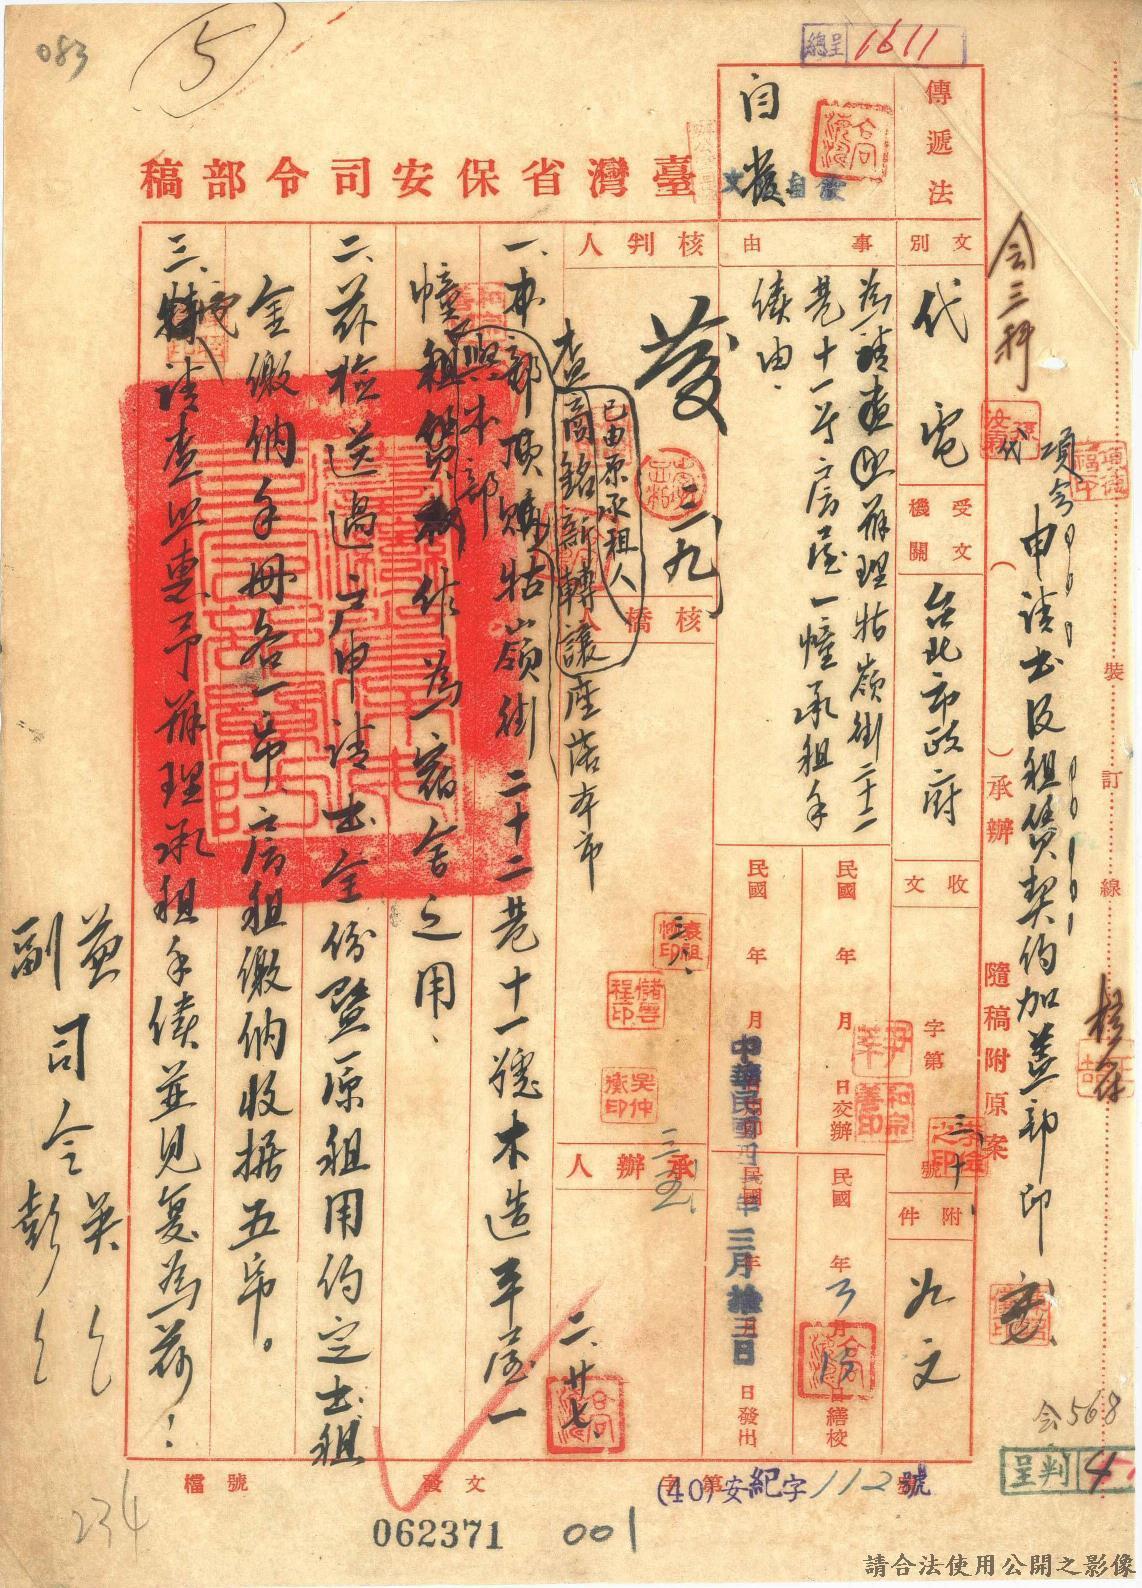 083
5
總呈 1611
裝訂線
會三科
項今代
申請書及租賃契約加蓋部印
（　）承辦
隨稿附原案
傳遞法
自發
自發文
臺灣省保安司令部稿
文別
代電
受文機關
台北市政府
收文
字第 號
附件
如文
事由
為請查照辦理牯嶺街二十二巷十一号房屋一幢承租手續由
民國 年 月 日交辦
民國 年 月 日繕校
民國 年 月 日
民國 年 月 日發出
中華民國四十年三月拾五日
核判人
發
三九
核稿
承辦人
二、廿七
查商銘新轉讓座落本市
已由原承租人
一、本部頂購牯嶺街二十二巷十一號木造平屋一
與本部
幢租賃作為宿舍之用、
二、茲檢送過戶申請書全份暨原租用約定書租
金繳納手冊各一帋、房租繳納收据五帋。
三、請查照惠予辦理承租手續並見复為荷！
兼司令吳
副司令彭
檔號
發文
(40)安紀字第112號
062371
001
234
會568
呈判 4
請合法使用公開之影像